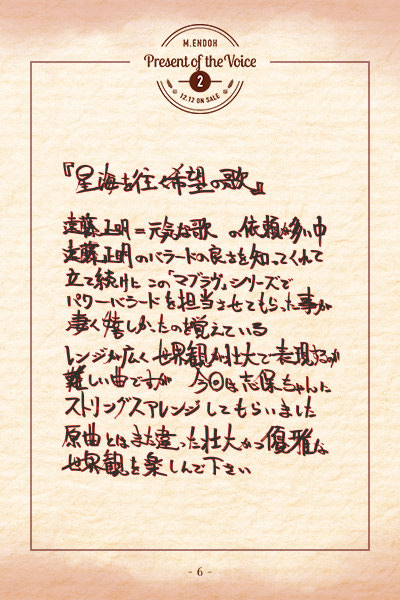 M.ENDOH
Present of the Voice
2
12.12 ON SALE
『星海を往く希望の歌』
遠藤正明=元気な歌 の依頼が多い中
遠藤正明のバラードの良さを知ってくれて
立て続けにこの「マブラヴ」シリーズで
パワーバラードを担当させてもらった事が
凄く嬉しかったのを覚えている
レンジが広く世界観が壮大で表現するのが
難しい曲ですが 今回は志保ちゃんに
ストリングスアレンジしてもらいました
原曲とはまた違った壮大かつ優雅な
世界観を楽しんで下さい
- 6 -